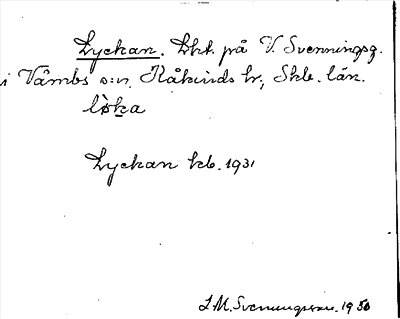 Lyckan. Lht. på V. Svenningsg.
i Våmbs s:n. Kåkinds hr, Skb. län.
lø̀ka
Lyckan kb. 1931
I. M. Svenungsson. 1950